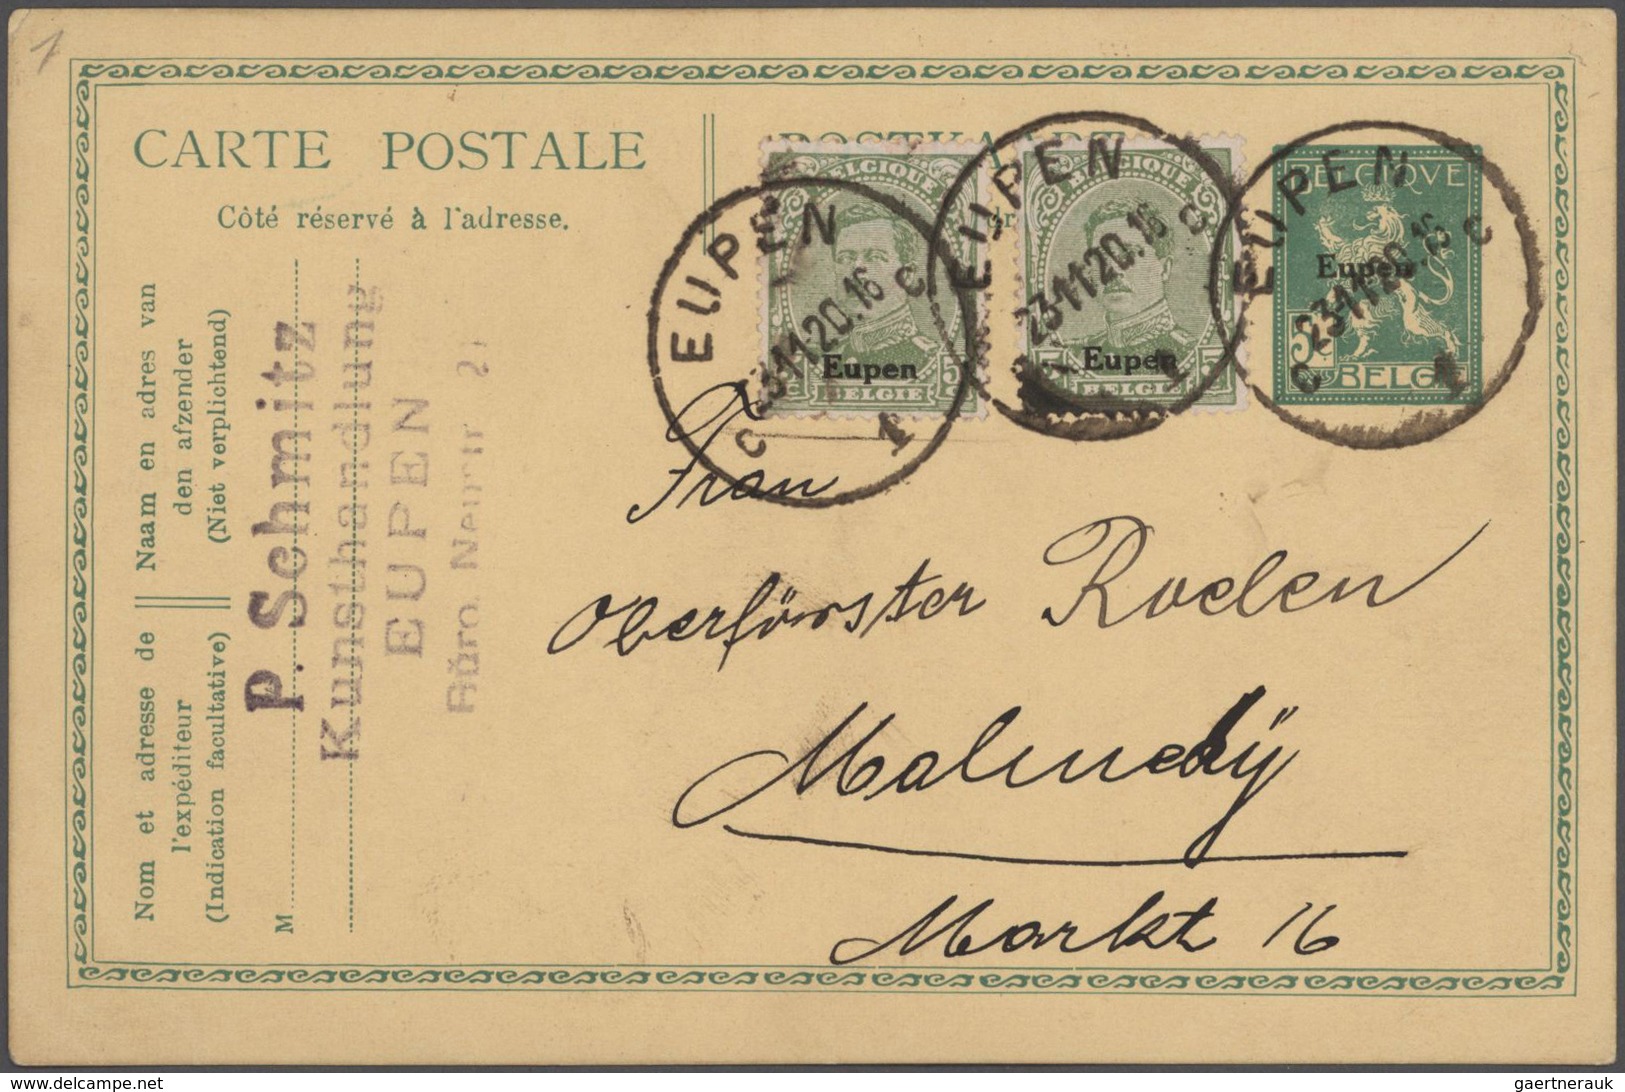 1
CARTE POSTALE
Côté réservé à l'adresse.
Nom et adresse de
l'expéditeur
(Indication facultative)
Naam en adres van
den afzender
(Niet verplichtend)
M
P. Schmitz
Kunsthandlung
EUPEN
Büro
POSTKAART
BELGIQUE
Eupen
5 5
BELGIE
BELGIQUE
Eupen
5 5
BELGIE
BELGIQVE
Eupen
5c
BELGIE
EUPEN
23.11.20.16
c c
1
EUPEN
23.11.20.16
c
1
EUPEN
23.11.20.16
c c
1
Frau
Oberförster Roelen
Malmedÿ
Markt 16
www.delcampe.net
gaertnerauk